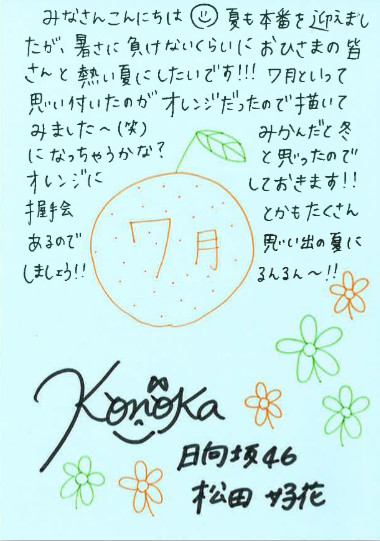 みなさんこんにちは 夏も本番を迎えまし
たが、暑さに負けないくらいにおひさまの皆
さんと熱い夏にしたいです!!! 7月といって
思い付いたのがオレンジだったので描いて
みました〜(笑) みかんだと冬
になっちゃうかな? と思ったので
オレンジに しておきます!!
握手会 とかもたくさん
あるので 思い出の夏に
しましょう!! るんるん〜!!
7月
Konoka
日向坂46
松田好花